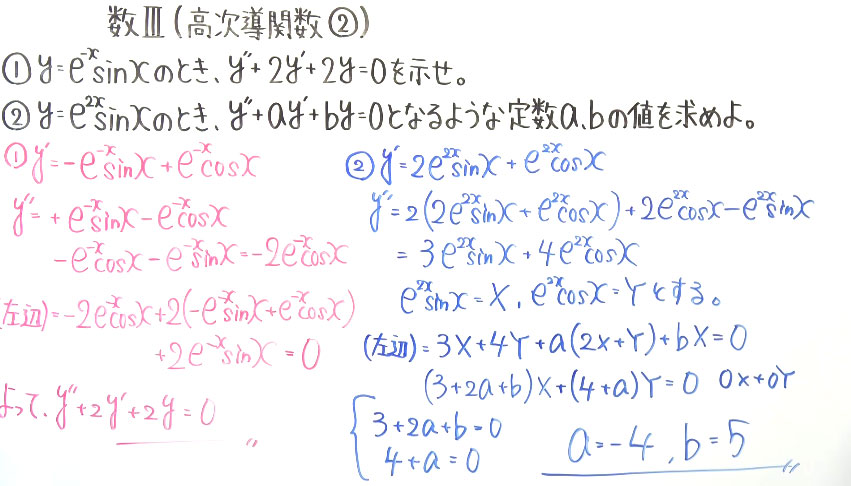 数Ⅲ(高次導関数②)
①y=e⁻ˣsinxのとき、y''+2y'+2y=0を示せ。
②y=e²ˣsinxのとき、y''+ay'+by=0となるような定数a、bの値を求めよ。
①y'=-e⁻ˣsinx+e⁻ˣcosx
y''=+e⁻ˣsinx-e⁻ˣcosx
-e⁻ˣcosx-e⁻ˣsinx=-2e⁻ˣcosx
(左辺)=-2e⁻ˣcosx+2(-e⁻ˣsinx+e⁻ˣcosx)
+2e⁻ˣsinx=0
よって、y''+2y'+2y=0
②y'=2e²ˣsinx+e²ˣcosx
y''=2(2e²ˣsinx+e²ˣcosx)+2e²ˣcosx-e²ˣsinx
=3e²ˣsinx+4e²ˣcosx
e²ˣsinx=X、e²ˣcosx=Yとする。
(左辺)=3X+4Y+a(2X+Y)+bX=0
(3+2a+b)X+(4+a)Y=0 0X+0Y
3+2a+b=0
4+a=0
a=-4,b=5